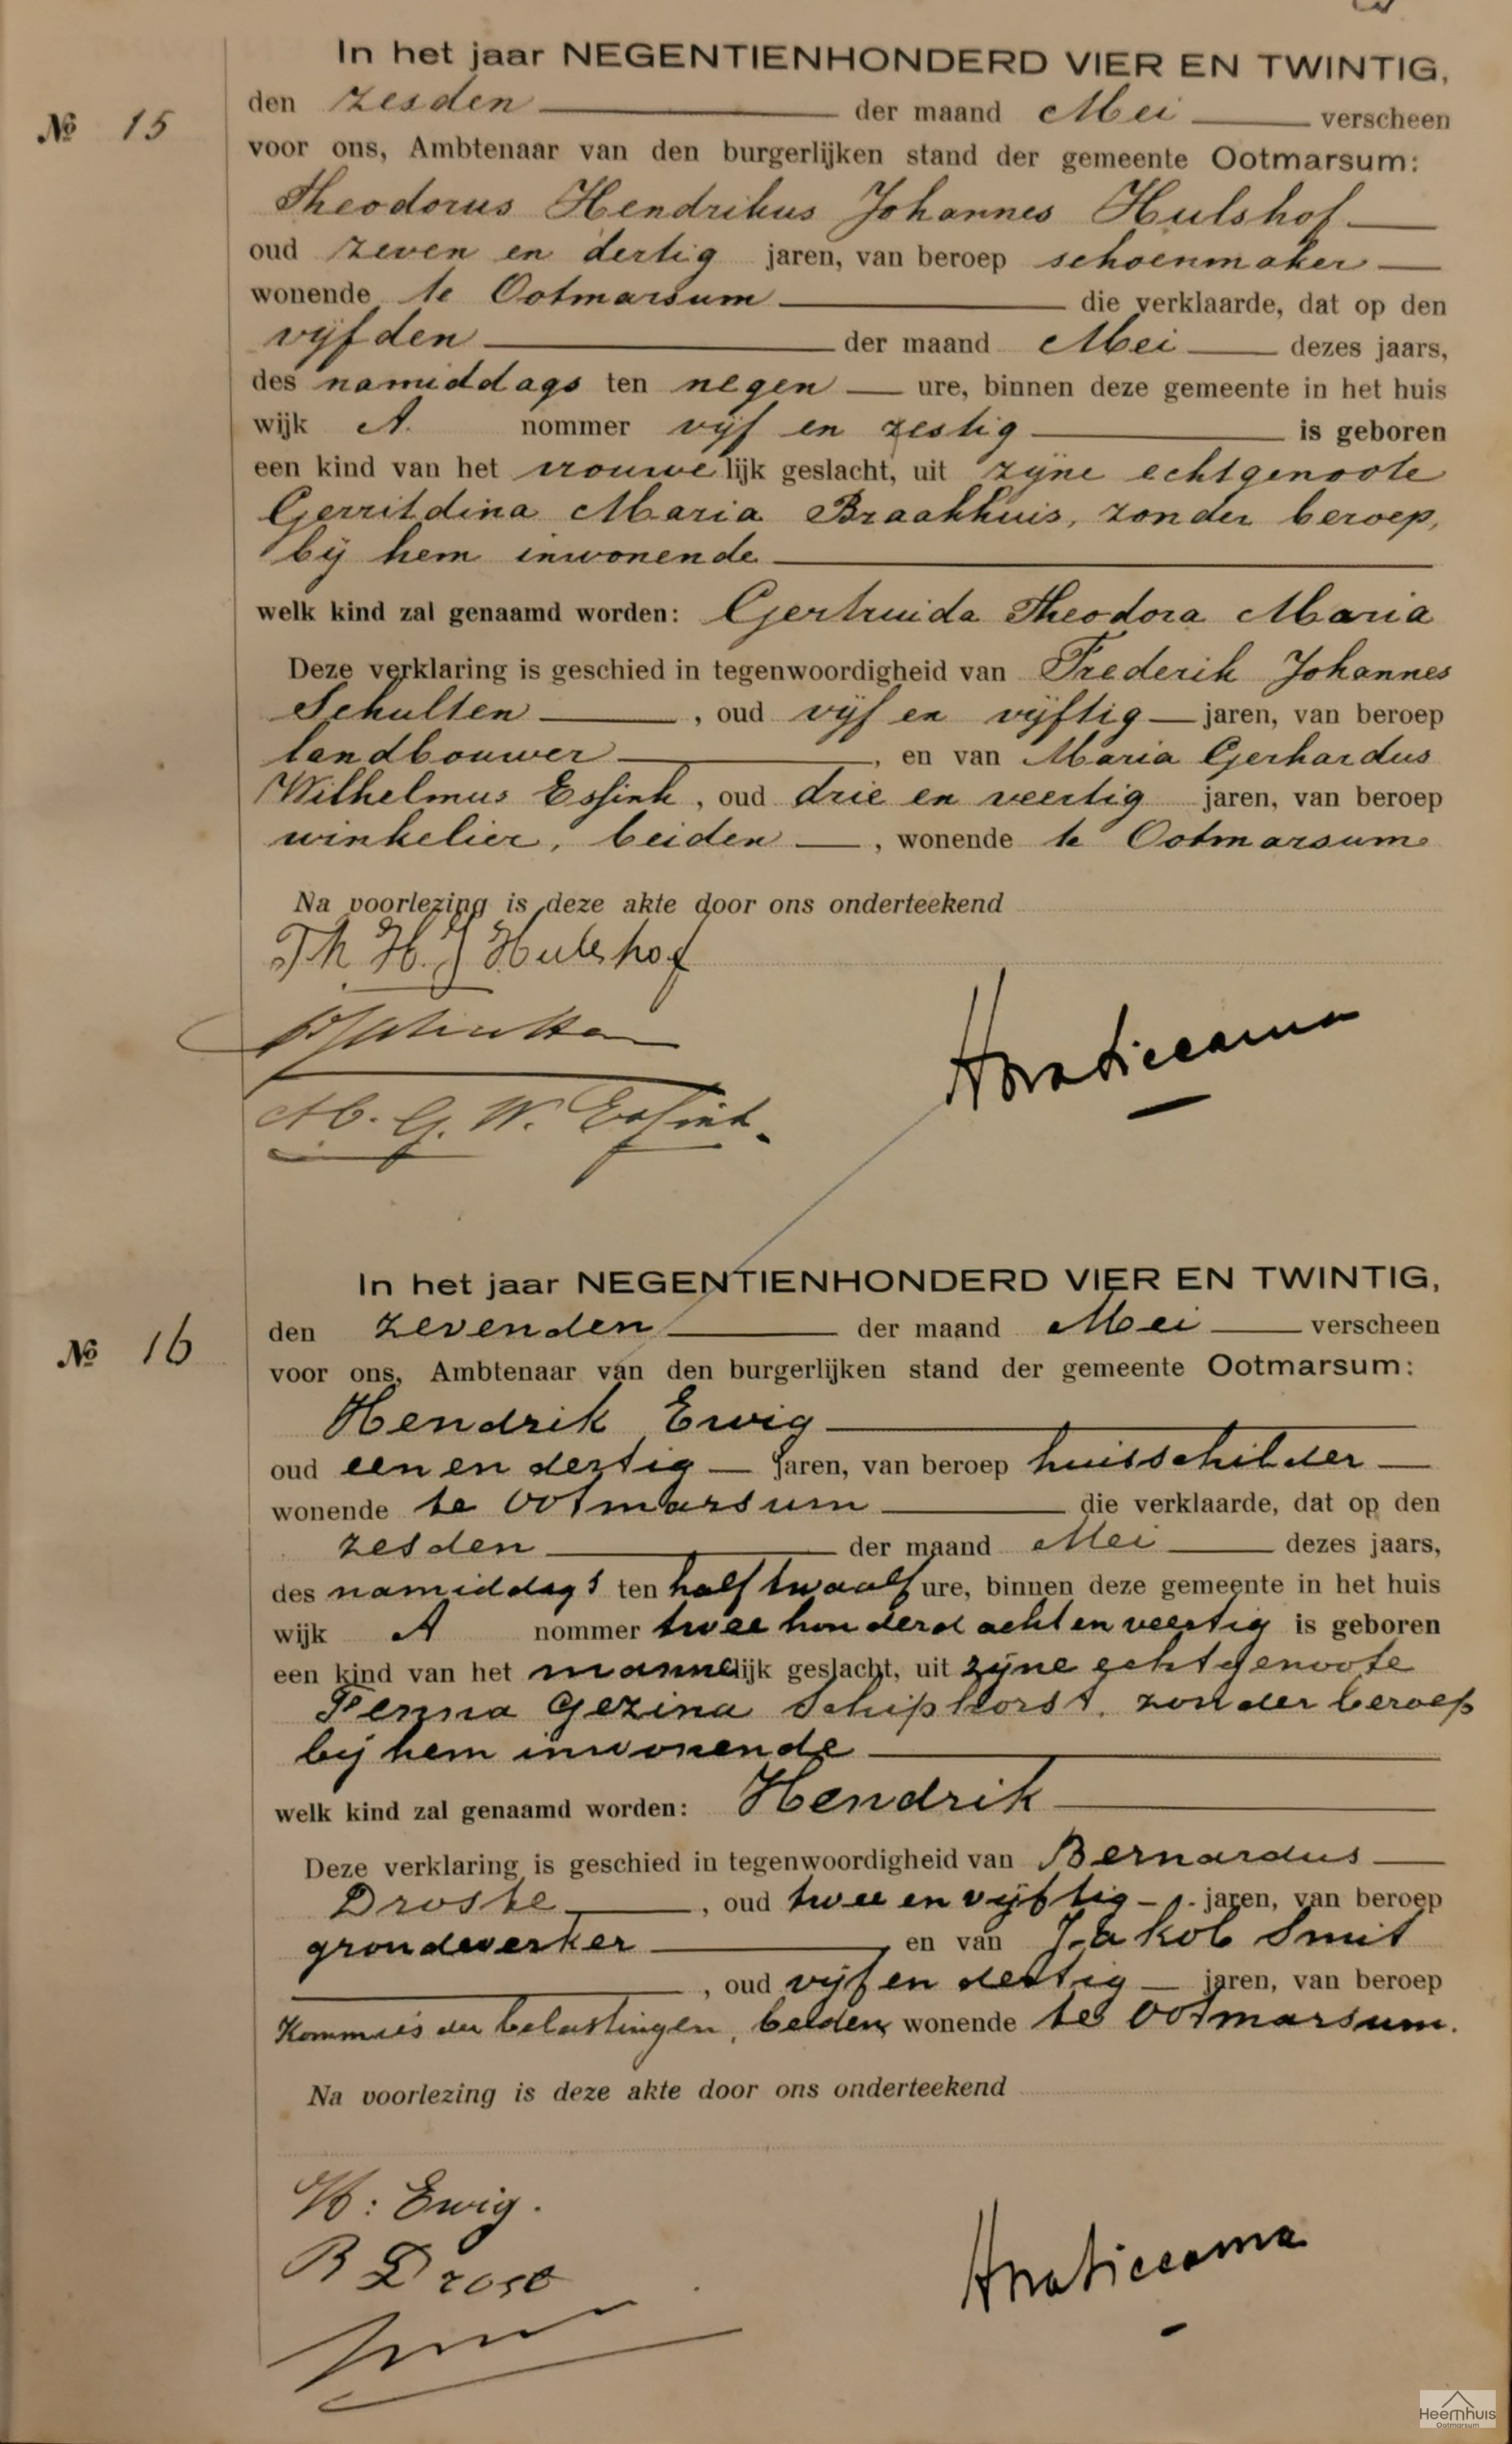 In het jaar NEGENTIENHONDERD VIER EN TWINTIG,
№ 15
den zesden der maand Mei verscheen
voor ons, Ambtenaar van den burgerlijken stand der gemeente Ootmarsum:
Theodorus Hendrikus Johannes Hulshof
oud zeven en dertig jaren, van beroep schoenmaker
wonende te Ootmarsum die verklaarde, dat op den
vijfden der maand Mei dezes jaars,
des namiddags ten negen ure, binnen deze gemeente in het huis
wijk A. nommer vijf en zestig is geboren
een kind van het vrouwelijk geslacht, uit zijne echtgenoote
Gerritdina Maria Braakhuis, zonder beroep,
bij hem inwonende
welk kind zal genaamd worden: Gertruida Theodora Maria
Deze verklaring is geschied in tegenwoordigheid van Frederik Johannes
Schulten, oud vijf en vijftig jaren, van beroep
landbouwer, en van Maria Gerhardus
Wilhelmus Essink, oud drie en veertig jaren, van beroep
winkelier, beiden, wonende te Ootmarsum
Na voorlezing is deze akte door ons onderteekend
Th H. J Hulshof
M. G. W. Essink.
In het jaar NEGENTIENHONDERD VIER EN TWINTIG,
№ 16
den zevenden der maand Mei verscheen
voor ons, Ambtenaar van den burgerlijken stand der gemeente Ootmarsum:
Hendrik Ewig
oud een en dertig jaren, van beroep huisschilder
wonende te Ootmarsum die verklaarde, dat op den
zesden der maand Mei dezes jaars,
des namiddags ten half twaalf ure, binnen deze gemeente in het huis
wijk A nommer twee honderd acht en veertig is geboren
een kind van het mannelijk geslacht, uit zijne echtgenoote
Fenna Gezina Schiphorst, zonder beroep
bij hem inwonende
welk kind zal genaamd worden: Hendrik
Deze verklaring is geschied in tegenwoordigheid van Bernardus
Droste, oud twee en vijftig jaren, van beroep
grondwerker en van Jakob Smit
, oud vijf en dertig jaren, van beroep
Kommies der belastingen, beiden wonende te Ootmarsum.
Na voorlezing is deze akte door ons onderteekend
H: Ewig.
B Droste
Heemhuis
Ootmarsum